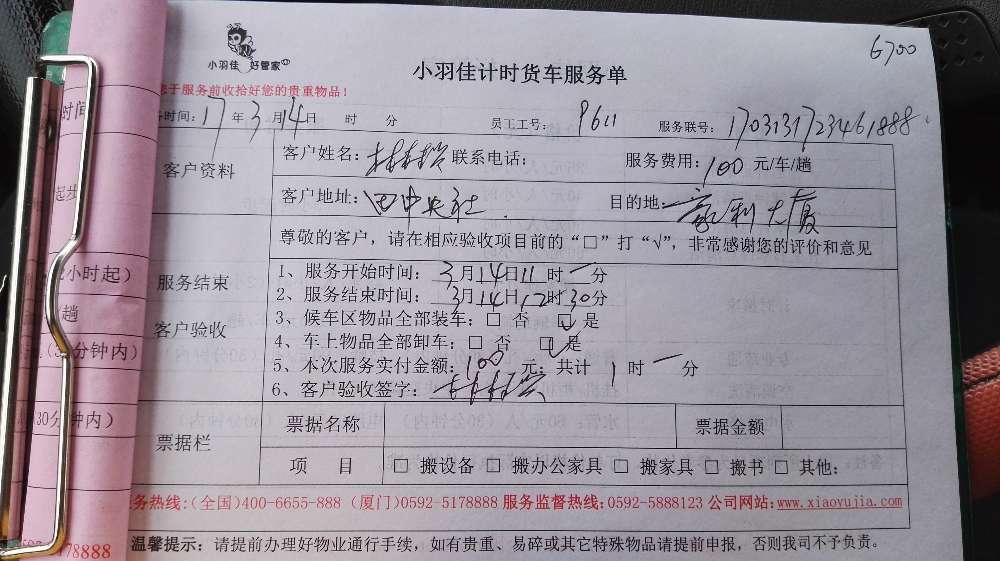 6700
小羽佳 好管家
小羽佳计时货车服务单
于服务前收拾好您的贵重物品！
时间：17年3月14日 时 分 员工工号：9611 服务联号：1703131723461888
客户资料
客户姓名： 联系电话： 服务费用：100元/车/趟
客户地址：田中央社 目的地：豪利大厦
服务结束
客户验收
尊敬的客户，请在相应验收项目前的“□”打“√”，非常感谢您的评价和意见
1、服务开始时间：3月14日11时一分
2、服务结束时间：3月14日12时30分
3、候车区物品全部装车：□ 否 □ 是
4、车上物品全部卸车：□ 否 □ 是
5、本次服务实付金额：100元；共计 1 时 一 分
6、客户验收签字：
票据栏
票据名称 票据金额
项 目 □ 搬设备 □ 搬办公家具 □ 搬家具 □ 搬书 □ 其他：
务热线：(全国)400-6655-888 (厦门)0592-5178888 服务监督热线：0592-5888123 公司网站：www.xiaoyujia.com
温馨提示：请提前办理好物业通行手续，如有贵重、易碎或其它特殊物品请提前申报，否则我司不予负责。
时间
起步
2小时起）
趟
分钟内）
30分钟内）
178888